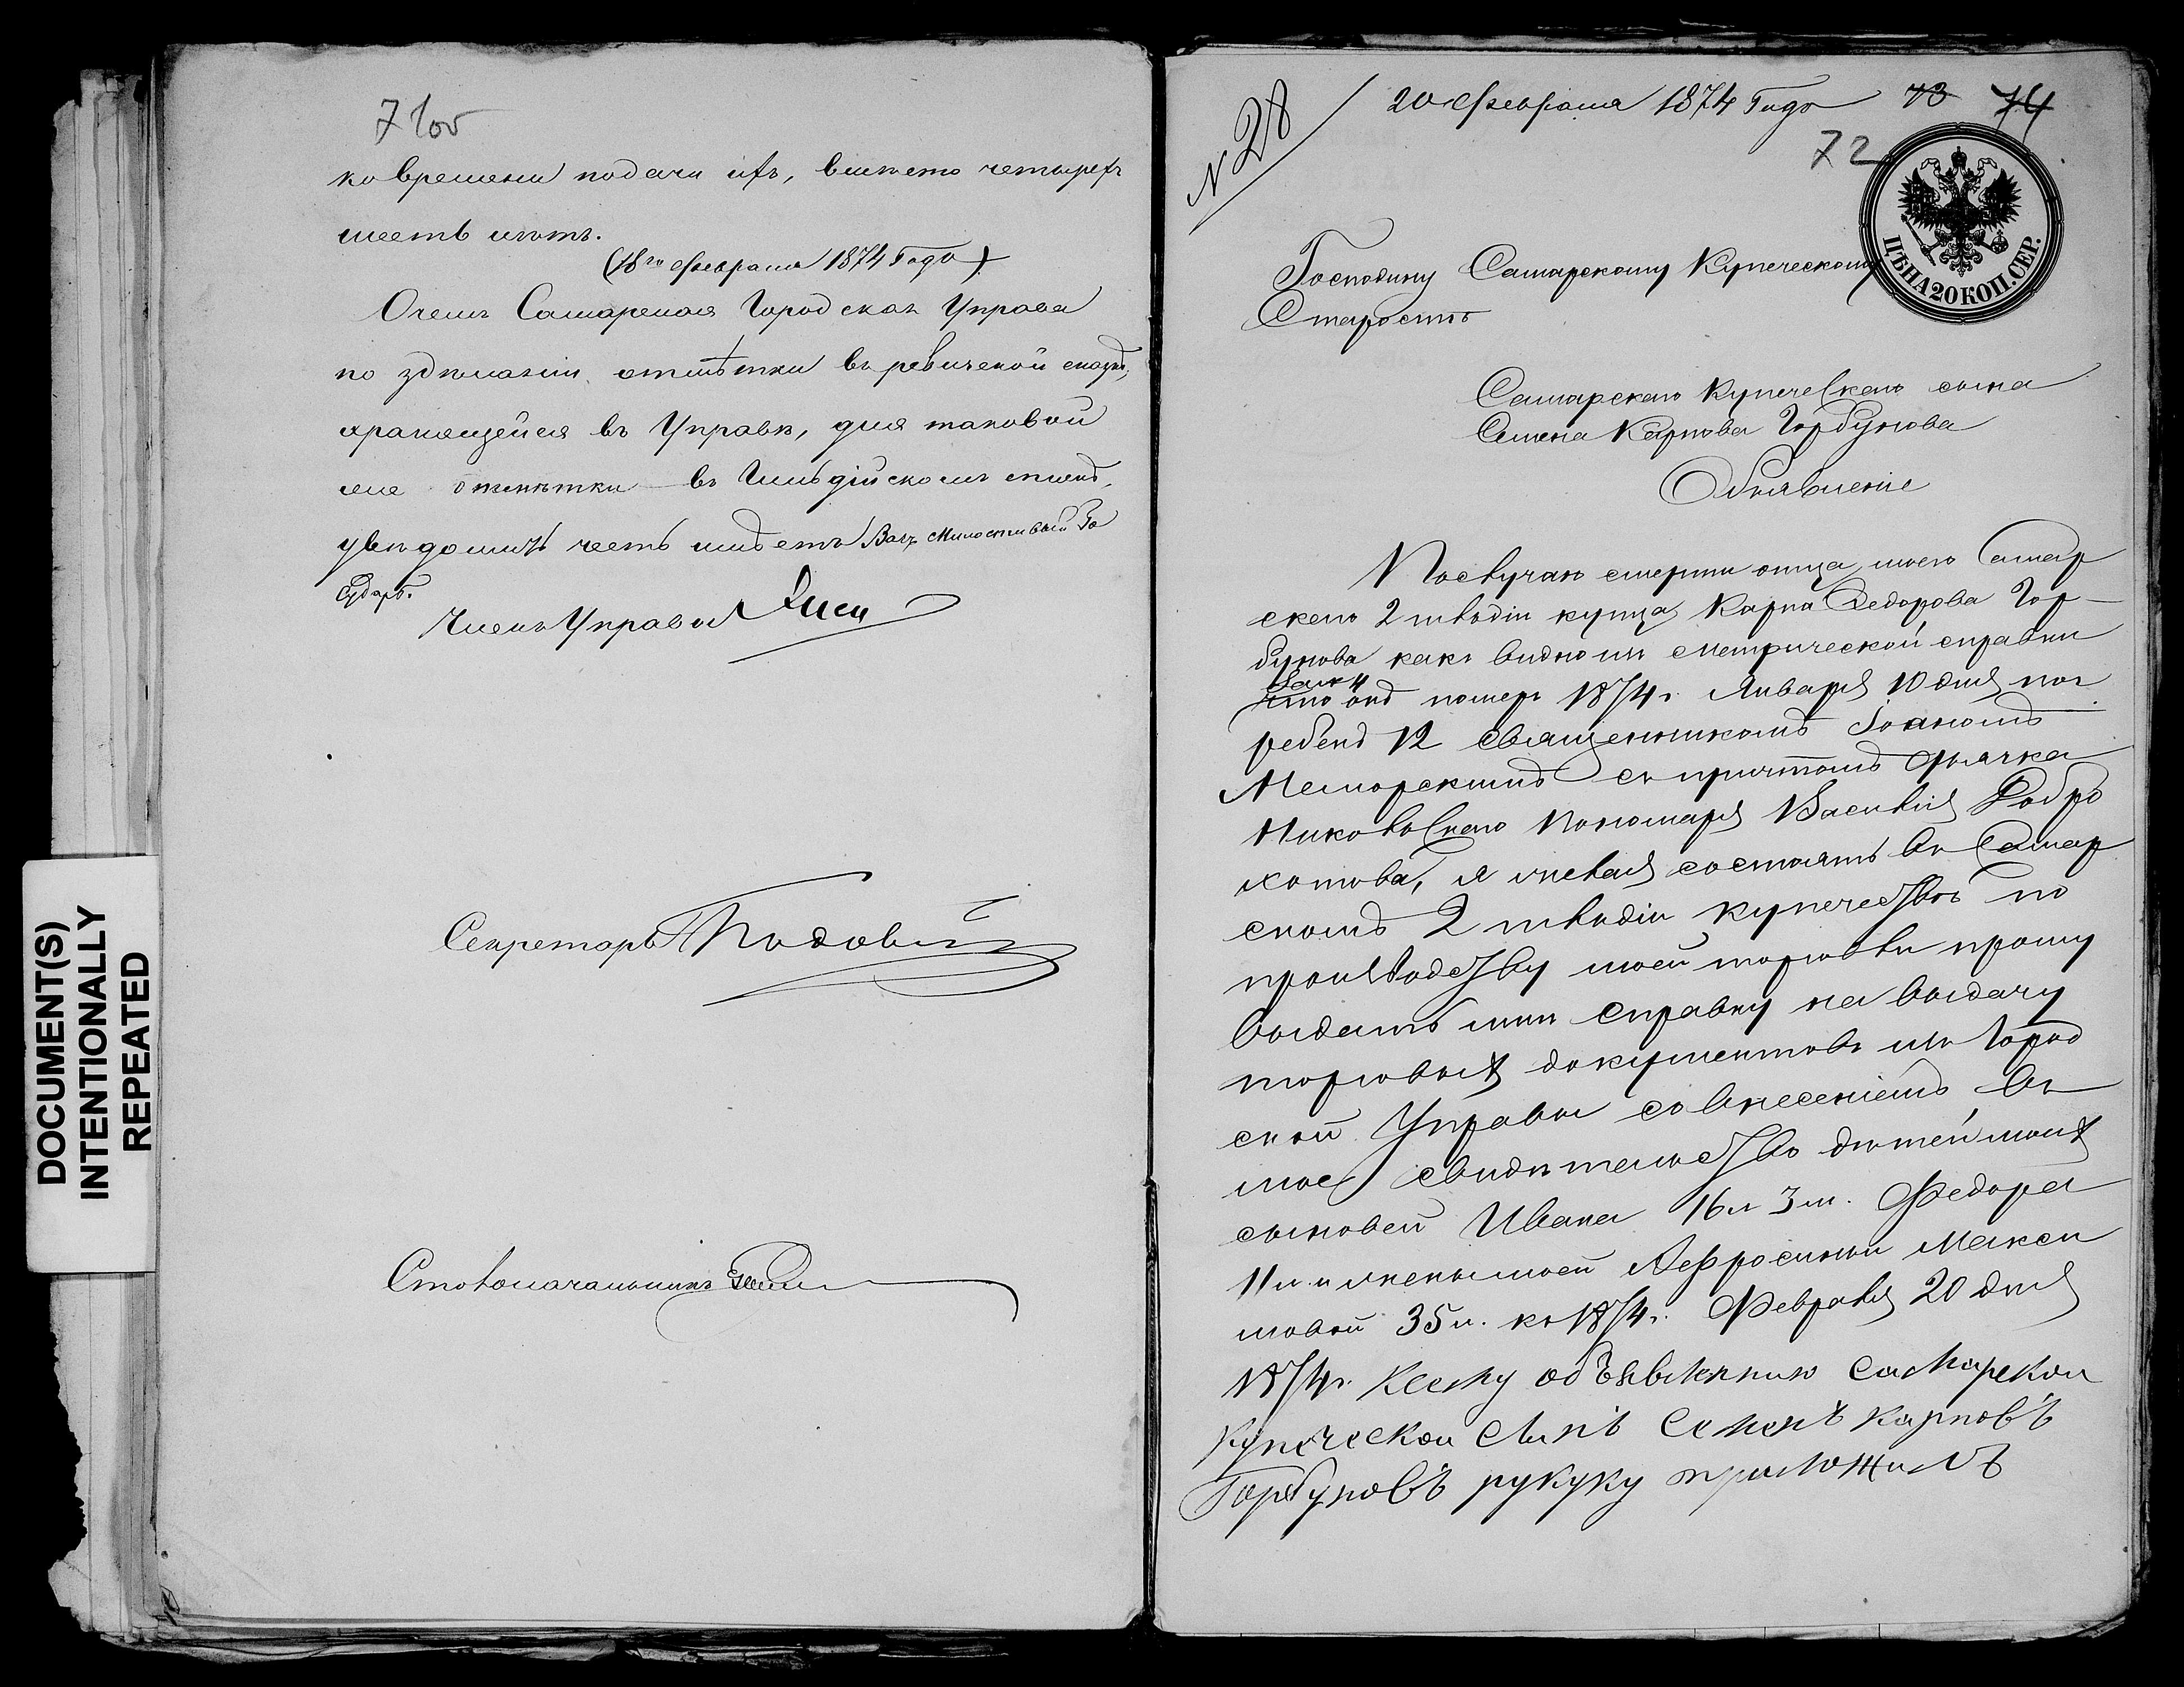 71об
ко времени подачи ихъ, вместо четырехъ
шесть летъ.
(18го февраля 1874 Года)
О чемъ Самарская Городская Управа
по зделаніи отмѣтки въ ревизской сказке,
хранящейся въ Управе, для таковой
же отметки въ Гильдійскомъ
уведомить честь имеетъ Васъ Милостивый Го
Сударь.
Членъ Управы
Секретарь
Столоначальникъ
DOCUMENT(S)
INTENTIONALLY
REPEATED
N 28
20 Февраля 1874 Года 73 74
72
ЦѢНА 20 КОП. СЕР.
Господину Самарскому Купеческому
Старосте
Самарскаго Купеческаго сына
Семена Карпова Горбунова
Объявленіе
Послучаю смерти отца моего Самар
скаго 2 гилдіи купца Карпа Федорова Гор-
бунова какъ видно изъ метрической справки
что онъ померъ 1874 г. Января 10 дня пог
ребенъ 12 священникомъ Іоаномъ
съ причтомъ дьячка
Никольскаго Пономаря Василія Добро
хотова, я желая состоять въ Самар
скомъ 2 гилдіи купечествѣ по
производству моей торговли прошу
выдать мне справку на выдачу
торговыхъ документовъ изъ Город
ской Управы со внесеніемъ въ
мое свидетельство детей моихъ
сыновей Ивана 16 л 3 м. Федора
11 л. и жены моей Афросиньи Макси
мовой 35 л. къ 1874 г. Февраля 20 дня
1874 г. Ксему объявленнию самарскои
купеческои сынъ Семенъ Карповъ
Горбуновъ рукуку приложилъ